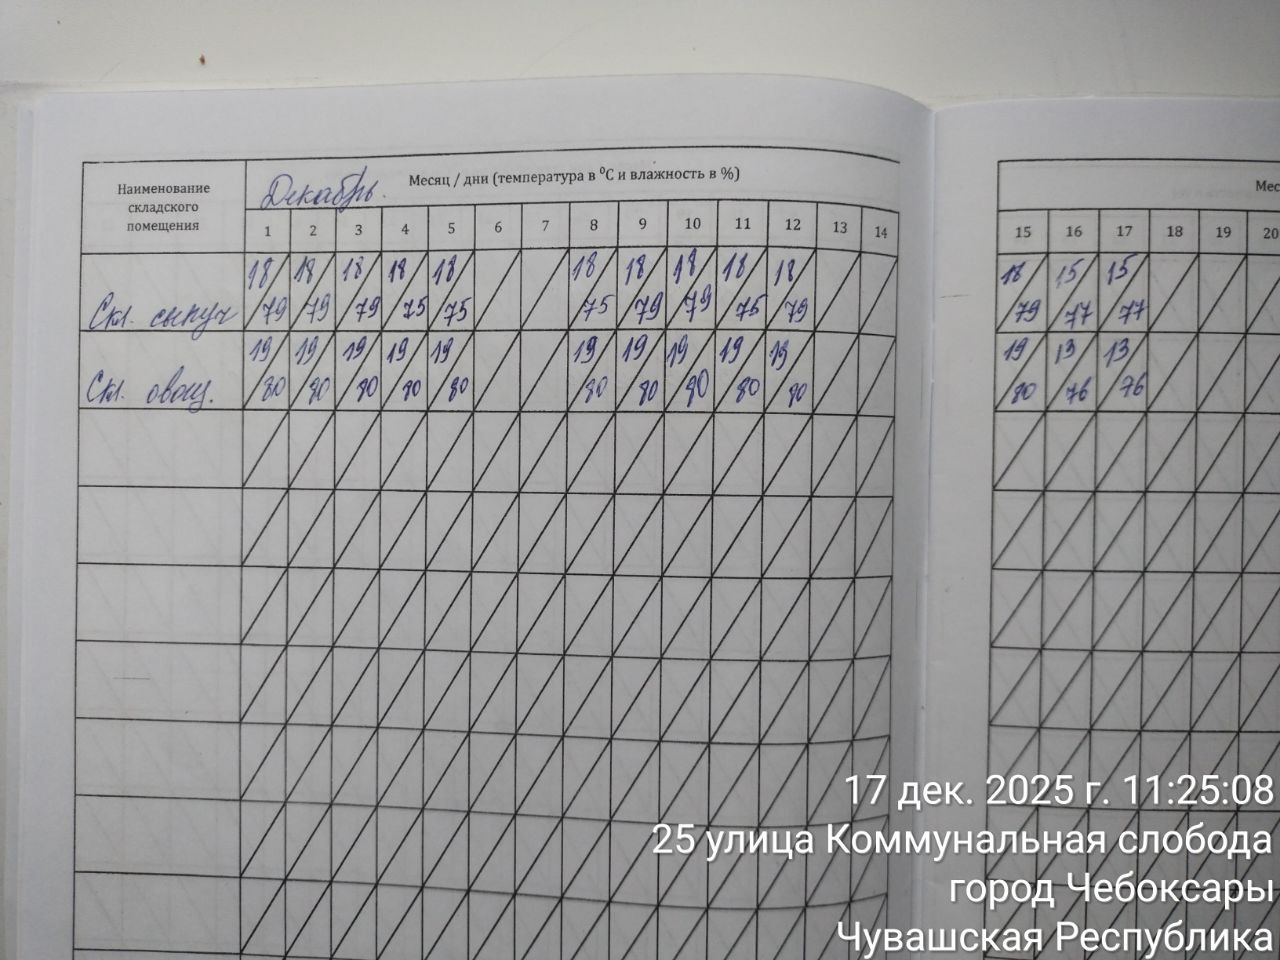 Наименование
складского
помещения
Декабрь.
Месяц / дни (температура в ⁰С и влажность в %)
1 2 3 4 5 6 7 8 9 10 11 12 13 14
Скл. сыпуч
18 18 18 18 18 18 18 18 18 18
79 79 79 75 75 75 79 79 75 79
Скл. овощ.
19 19 19 19 19 19 19 19 19 19
80 80 80 80 80 80 80 80 80 80
Мес
15 16 17 18 19 20
18 15 15
79 77 77
19 13 13
80 76 76
17 дек. 2025 г. 11:25:08
25 улица Коммунальная слобода
город Чебоксары
Чувашская Республика